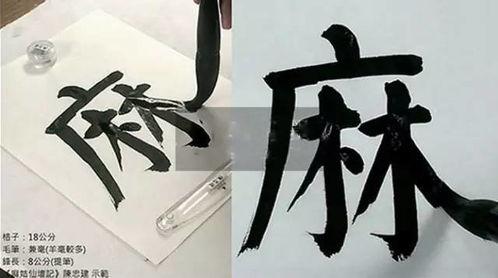 麻
麻
格子：18公分
毛筆：兼毫(羊毫較多)
鋒長：8公分(提筆)
《麻姑仙壇記》陳忠建 示範